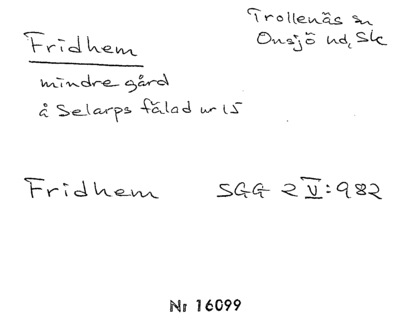 Trollenäs sn
Onsjö hd, Sk
Fridhem
mindre gård
å Selarps fälad nr 15
Fridhem SGG 2 V:982
Nr 16099